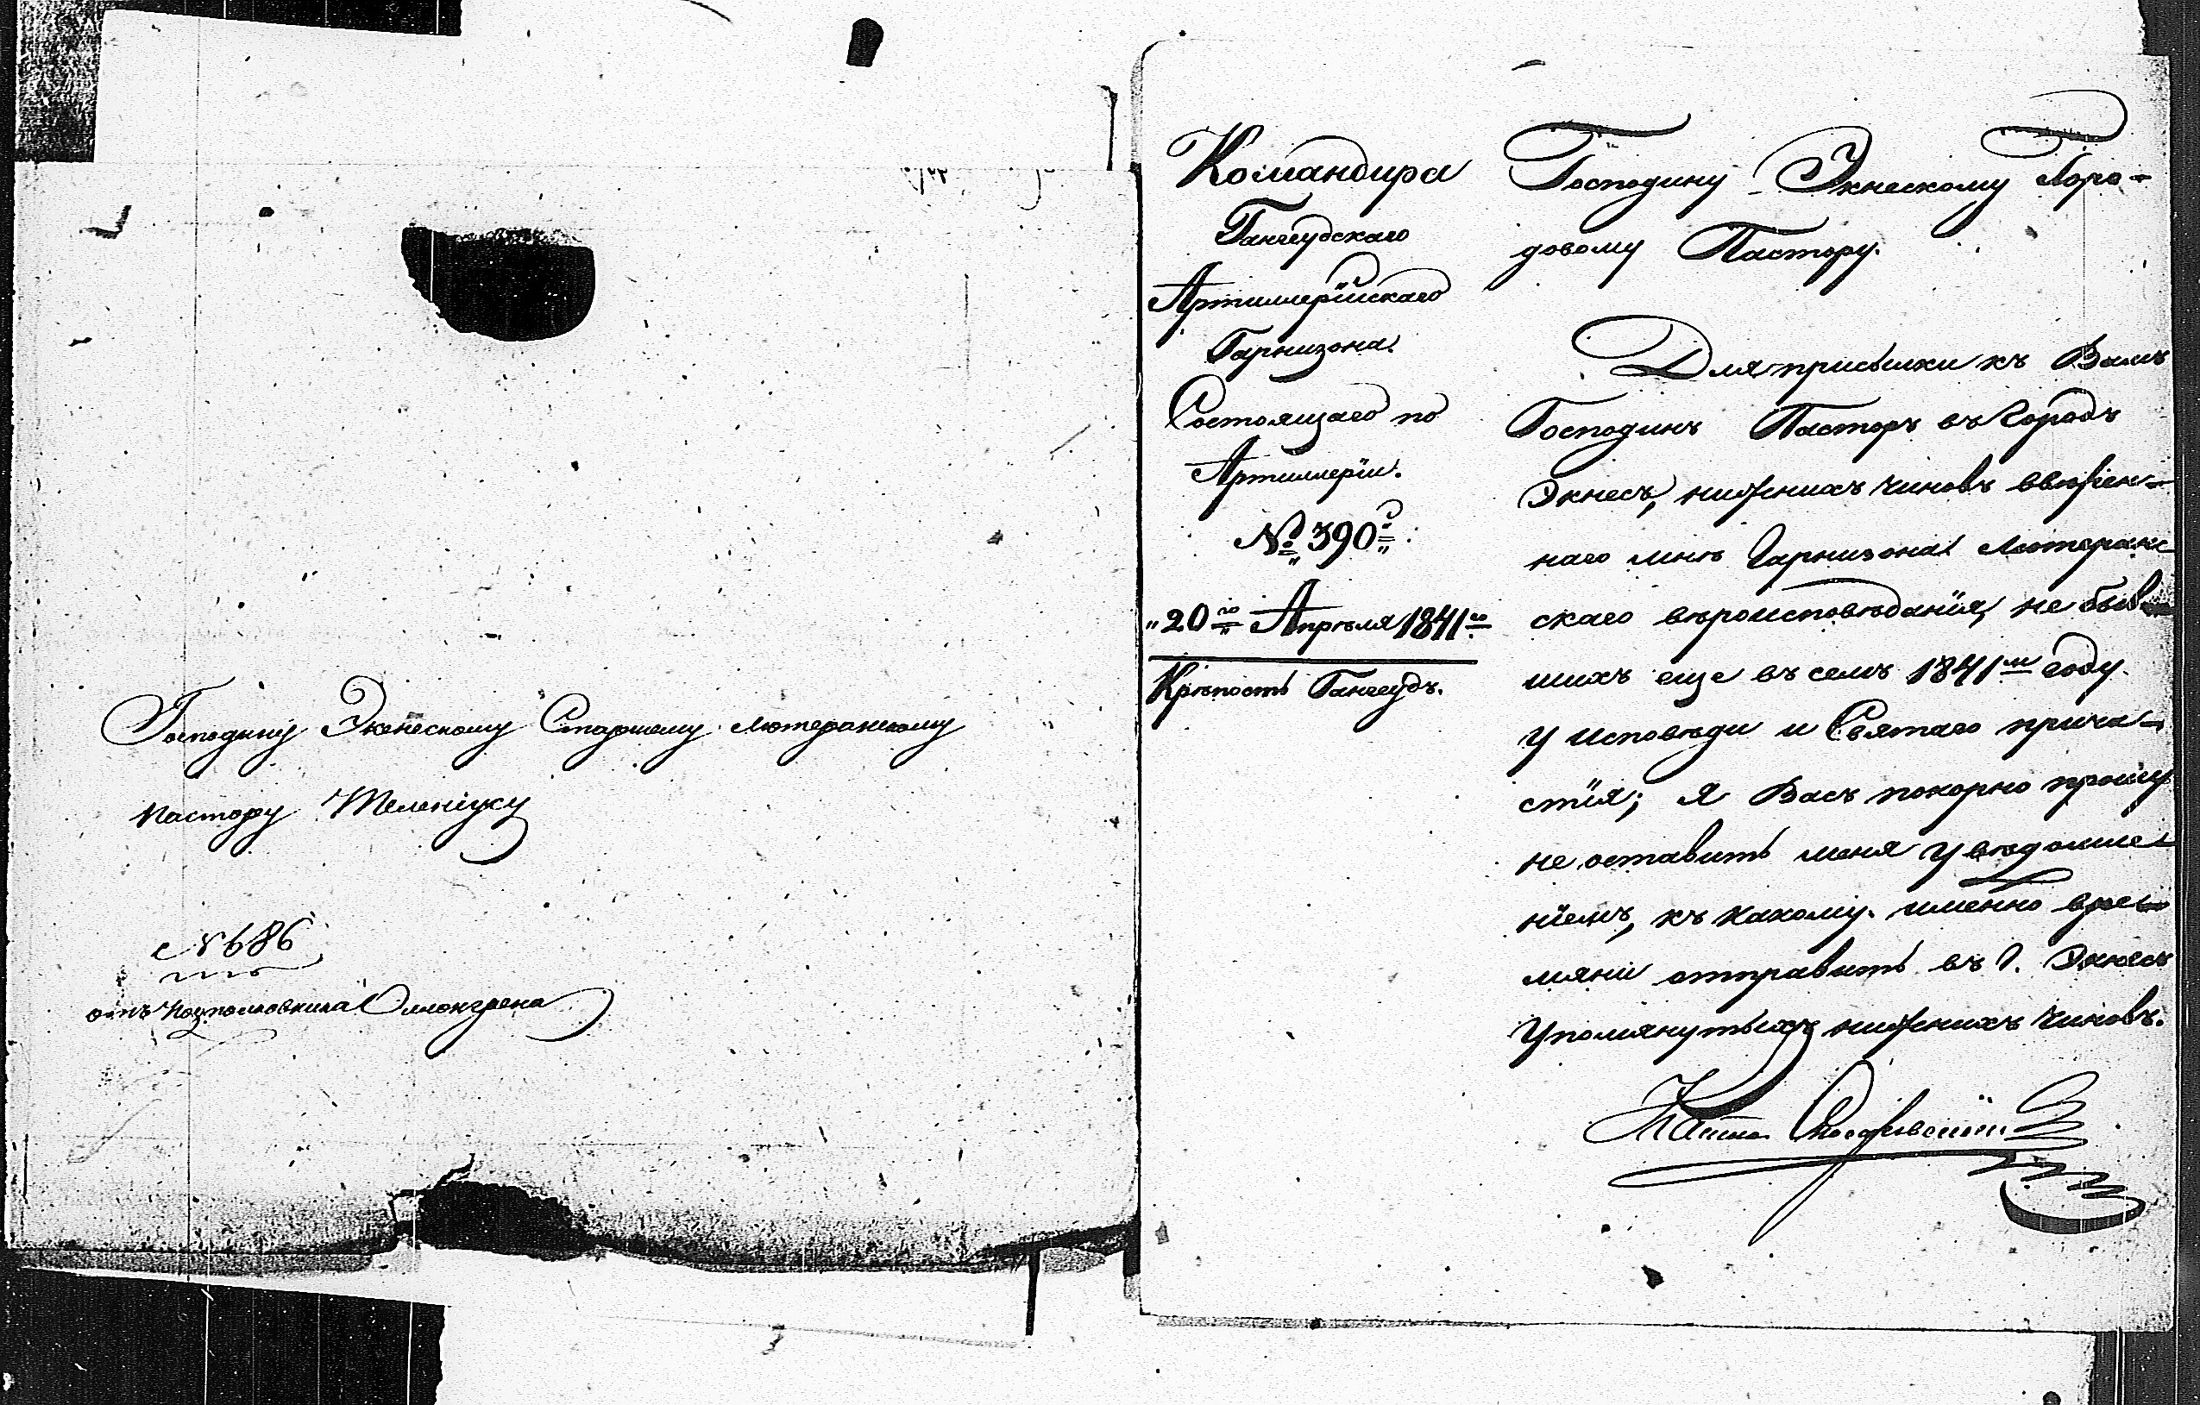 Господину Экнескому Старшему лютеранскому
пастору
№ 686
отъ подполковника
Командира
Гангеудскаго
Артиллерійскаго
Гарнизона.
Состоящаго по
Артиллеріи.
№ 390й
"20го Апрѣля 1841го
Крѣпость Гангеудъ.
Господину Экнескому Горо-
довому Пастору.
Для присылки къ Вамъ
Господинъ Пасторъ въ Городъ
Экнесъ, нижнихъ чиновъ ввѣрен-
наго мнѣ Гарнизона Лютеран-
скаго вѣроисповѣданія, не быв-
шихъ еще въ семъ 1841м году
у исповѣди и Святаго прича-
стія; я Васъ покорно прошу
не оставить меня увѣдомле-
ніемъ, къ какому именно вре-
мяни отправить въ Г. Экнесъ
упомянутыхъ нижнихъ чиновъ.